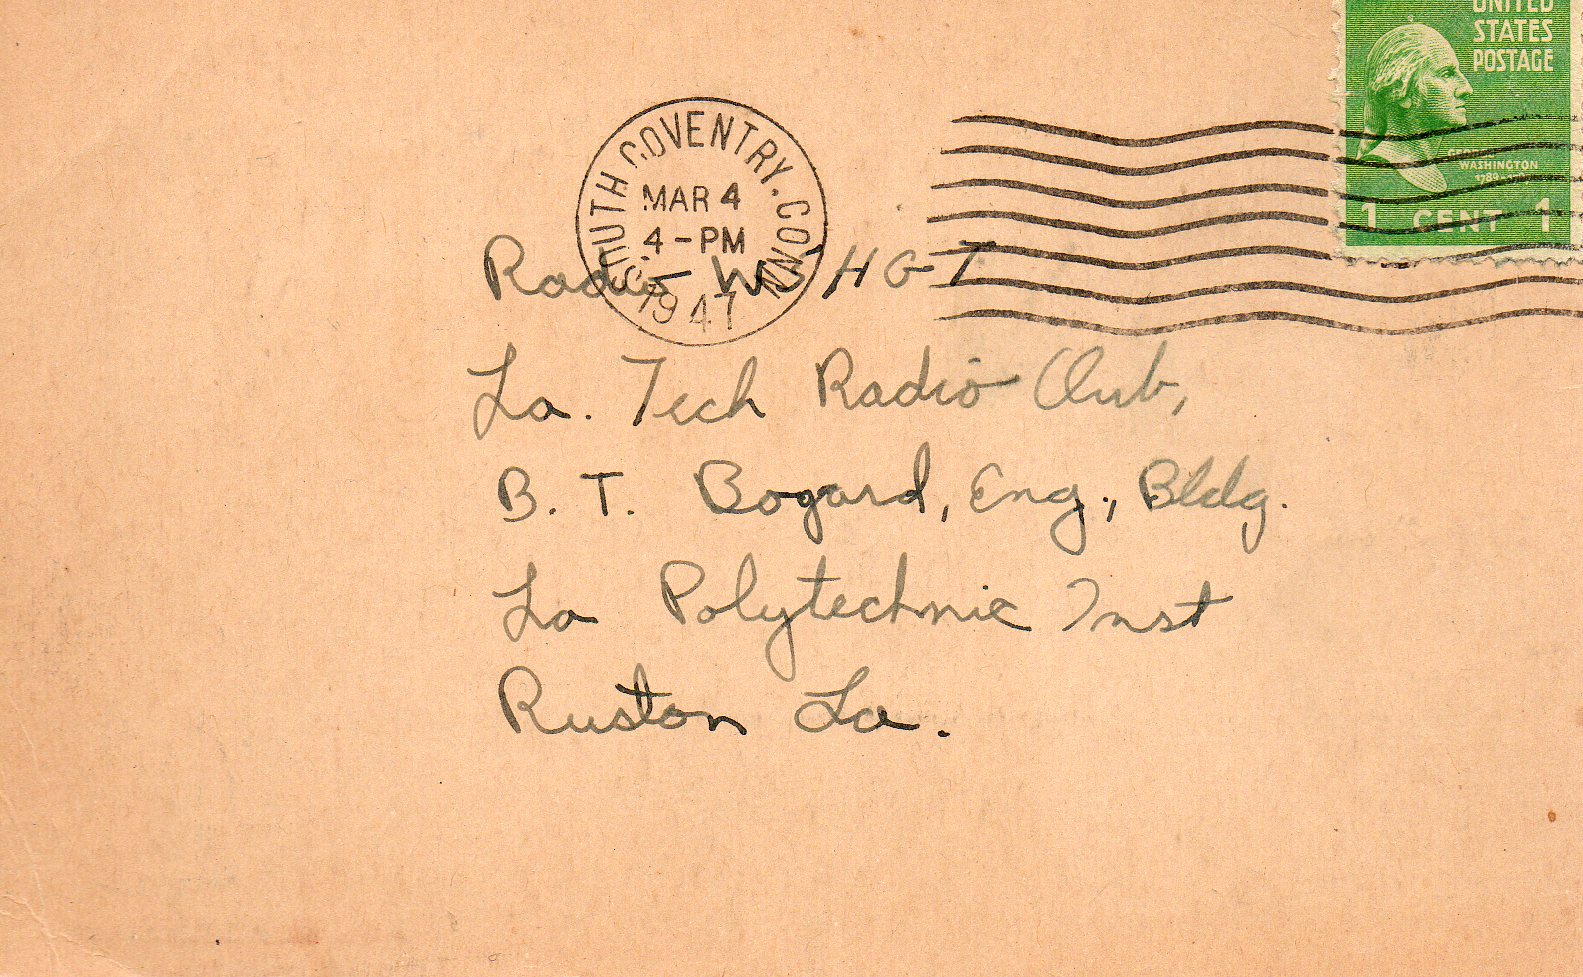 UNITED
STATES
POSTAGE
GEORGE
WASHINGTON
1 CENT 1
SOUTH COVENTRY. CONN
MAR 4
4-PM
1947
Radio W5HGT
La. Tech Radio Club,
B. T. Bogard, Eng., Bldg.
La Polytechnic Inst
Ruston La.